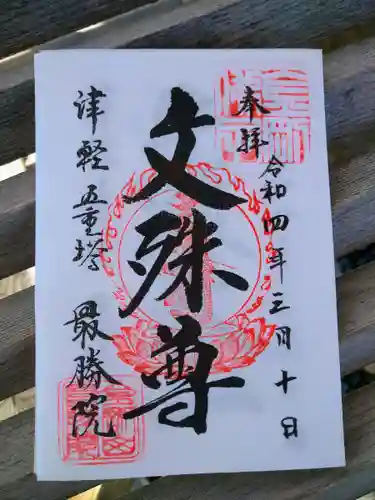 奉拝 令和四年三月十日
文殊尊
津軽五重塔 最勝院